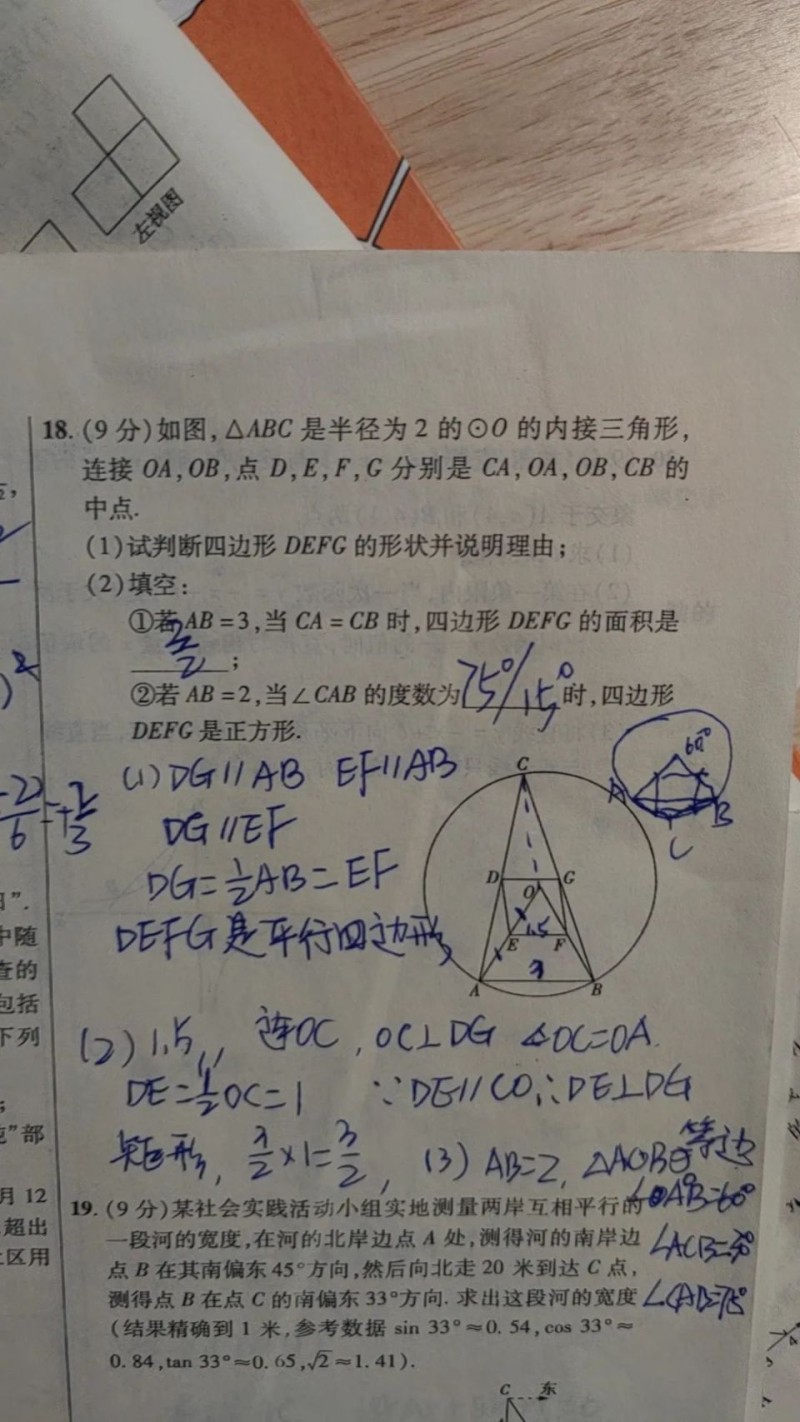 左视图
18. (9 分)如图,△ABC 是半径为 2 的⊙O 的内接三角形,
连接 OA,OB,点 D,E,F,G 分别是 CA,OA,OB,CB 的
中点.
(1)试判断四边形 DEFG 的形状并说明理由;
(2)填空:
①若 AB=3,当 CA=CB 时,四边形 DEFG 的面积是
3/2 ;
②若 AB=2,当∠CAB 的度数为 75°/15° 时,四边形
DEFG 是正方形.
(1) DG∥AB EF∥AB
DG∥EF
DG=1/2AB=EF
DEFG是平行四边形,
C
D
O
G
E
1.5
F
3
A
B
60°
A
B
C
(2) 1.5,, 连OC, OC⊥DG OC=OA.
DE=1/2OC=1 ∵DE∥CO,∴DE⊥DG
矩形, 3/2×1=3/2, (3) AB=2, △AOB 等边
∠OAB=60°
∠ACB=30°
∠CAB=75°
19. (9 分)某社会实践活动小组实地测量两岸互相平行的
一段河的宽度,在河的北岸边点 A 处,测得河的南岸边
点 B 在其南偏东 45°方向,然后向北走 20 米到达 C 点,
测得点 B 在点 C 的南偏东 33°方向. 求出这段河的宽度
(结果精确到 1 米,参考数据 sin 33°≈0. 54,cos 33°≈
0. 84,tan 33°≈0. 65,√2≈1. 41).
C 东
中随
查的
包括
下列
”部
月 12
超出
区用